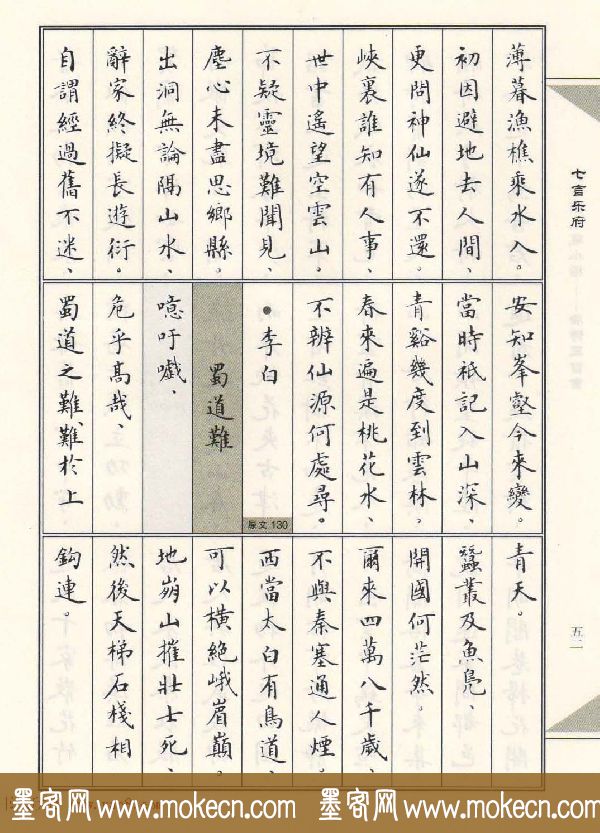 薄暮漁樵乘水入。
初因避地去人間、
更問神仙遂不還。
峽裏誰知有人事、
世中遙望空雲山。
不疑靈境難聞見、
塵心未盡思鄉縣。
出洞無論隔山水、
辭家終擬長遊衍。
自謂經過舊不迷、
安知峯壑今來變。
當時衹記入山深、
青谿幾度到雲林。
春來遍是桃花水、
不辨仙源何處尋。
●李白
原文130
蜀道難
噫吁嚱、
危乎高哉、
蜀道之難、難於上
青天。
蠶叢及魚鳧、
開國何茫然。
爾來四萬八千歲、
不與秦塞通人煙。
西當太白有鳥道、
可以橫絕峨眉巔。
地崩山摧壯士死、
然後天梯石棧相
鈎連。
七言乐府
五二
墨客网 www.mokecn.com 墨客网 www.mokecn.com